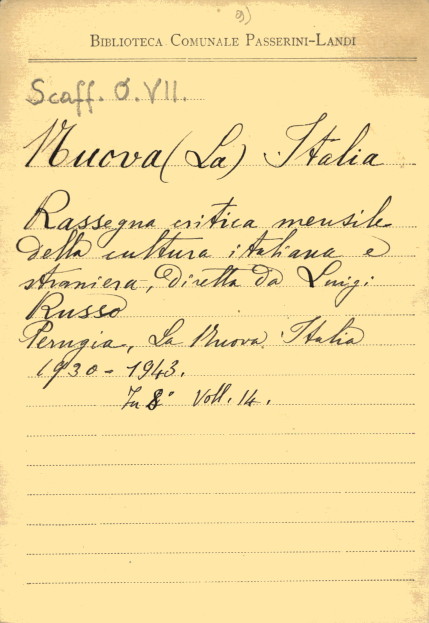 9)
BIBLIOTECA COMUNALE PASSERINI-LANDI
Scaff. O. VII.
Nuova (La) Italia
Rassegna critica mensile
della cultura italiana e
straniera, diretta da Luigi
Russo
Perugia, La Nuova Italia
1930 - 1943.
In 8° Voll. 14.